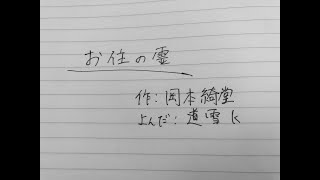 お住の霊
作:岡本綺堂
よんだ:道雪k